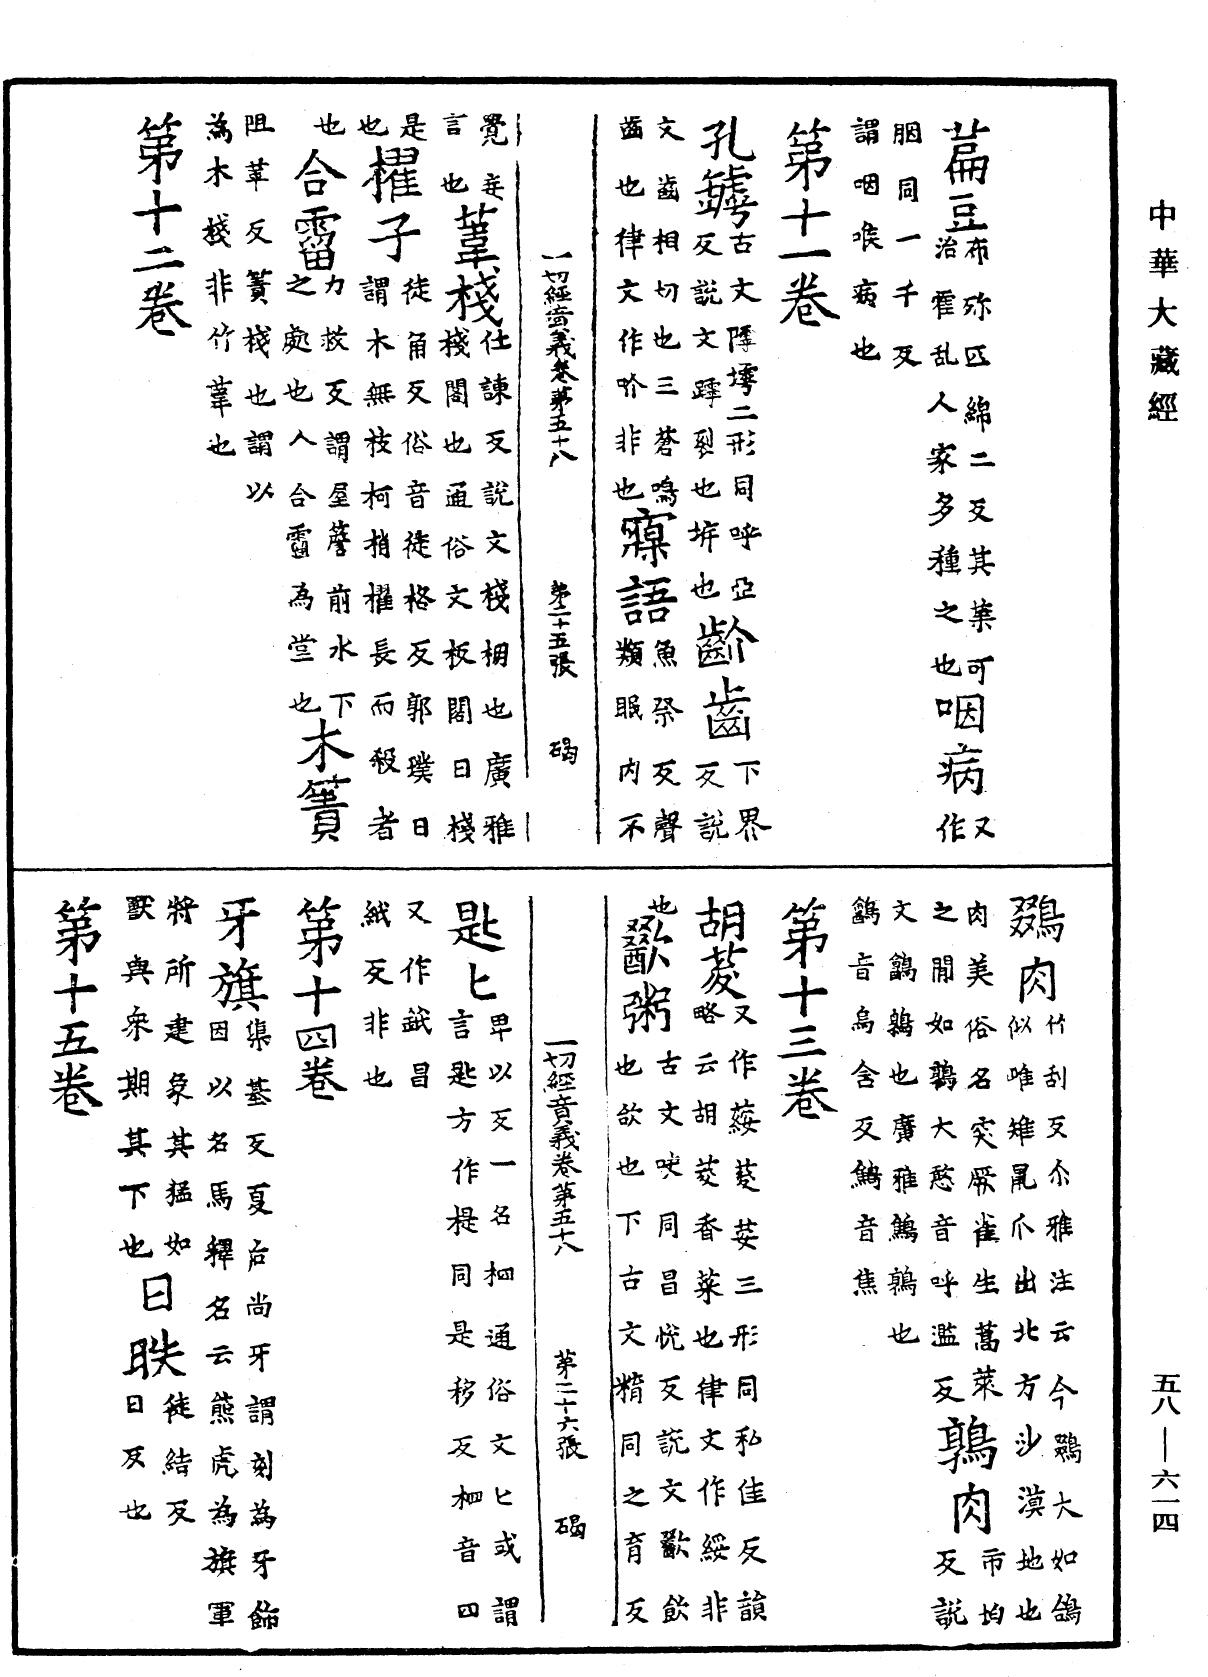 中華大藏經
萹豆布弥匹綿二反其葉可
治霍乱人家多種之也咽病又作
胭同一千反
謂咽喉病也
第十一卷
孔罅古文㙤墿二形同呼亞
反說文罅裂也坼也齘齒下界反說
文齒相切也三蒼鳴
齒也律文作吤非也寱語魚祭反聲
類眠内不
一切經音義卷第五十八 第二十五張 碣
覺妄
言也葦棧仕諫反說文棧棚也廣雅
棧閣也通俗文板閣曰棧
是也櫂子徒角反俗音徒格反郭璞曰
謂木無枝柯梢櫂長而殺者
也合霤力救反謂屋簷前水下
之處也人合霤為堂也木簀
阻革反簀棧也謂以
為木棧非竹葦也
第十二卷
鵽肉竹刮反尒雅注云今鵽大如鴿
似唯雉鼠爪出北方沙漠地也
肉美俗名突厥雀生蒿萊
之間如鶉大憨音呼濫反鶉肉市均反說
文鷂鶉也廣雅鷦鶉也
鷂音烏含反鷦音焦
第十三卷
胡荾又作藧葰荽三形同私佳反韻
略云胡荾香菜也律文作綏非
也歠粥古文吷同昌悦反説文歠飲
也欱也下古文䊝同之育反
一切經音義卷第五十八 第二十六張 碣
匙匕卑以反一名柶通俗文匕或謂
言匙方作㮛同是移反柶音四
又作䤦昌
紙反非也
第十四卷
牙旗渠基反夏后尚牙謂刻為牙飾
因以名馬釋名云熊虎為旗軍
將所建象其猛如
獸與衆期其下也日昳徒結反
日反也
第十五卷
五八—六一四